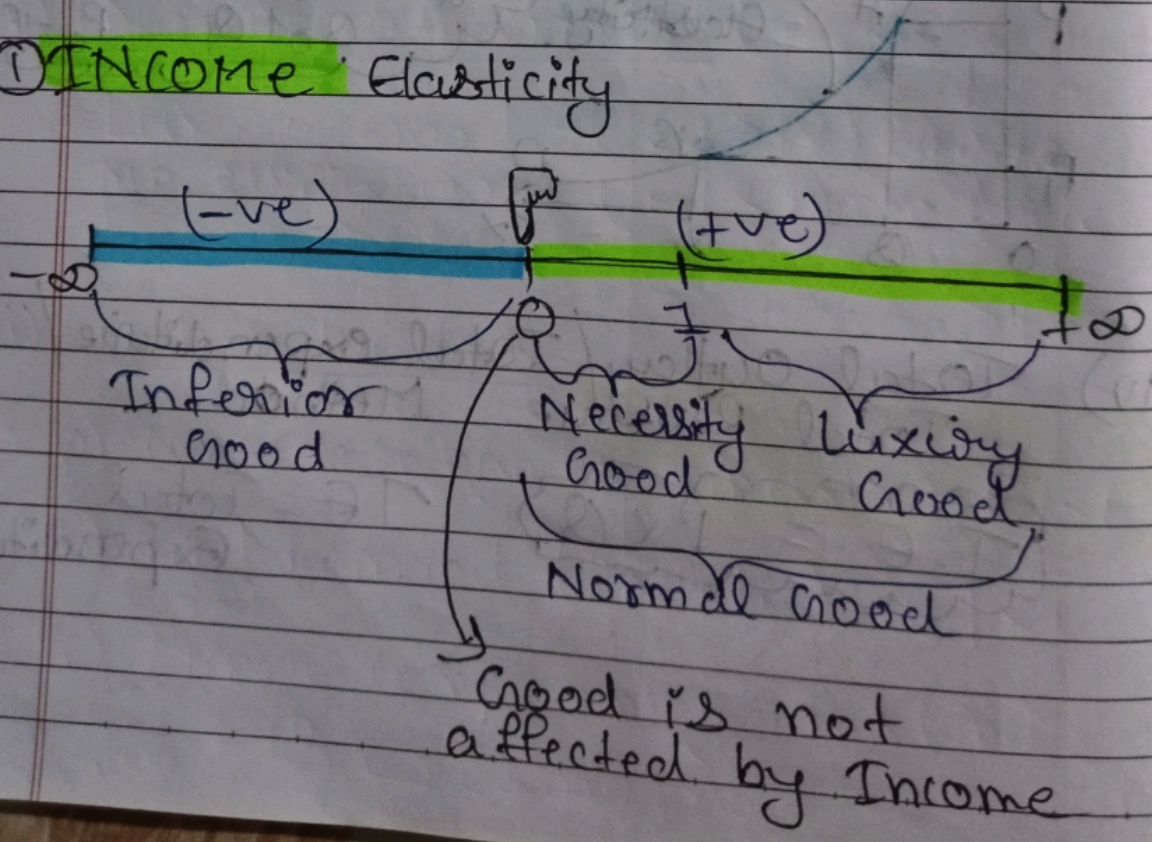 ① INCOME Elasticity
(-ve) (+ve)
-∞ 0 1 +∞
Inferior Necessity Luxury
Good Good Good
Normal Good
Good is not
affected by Income